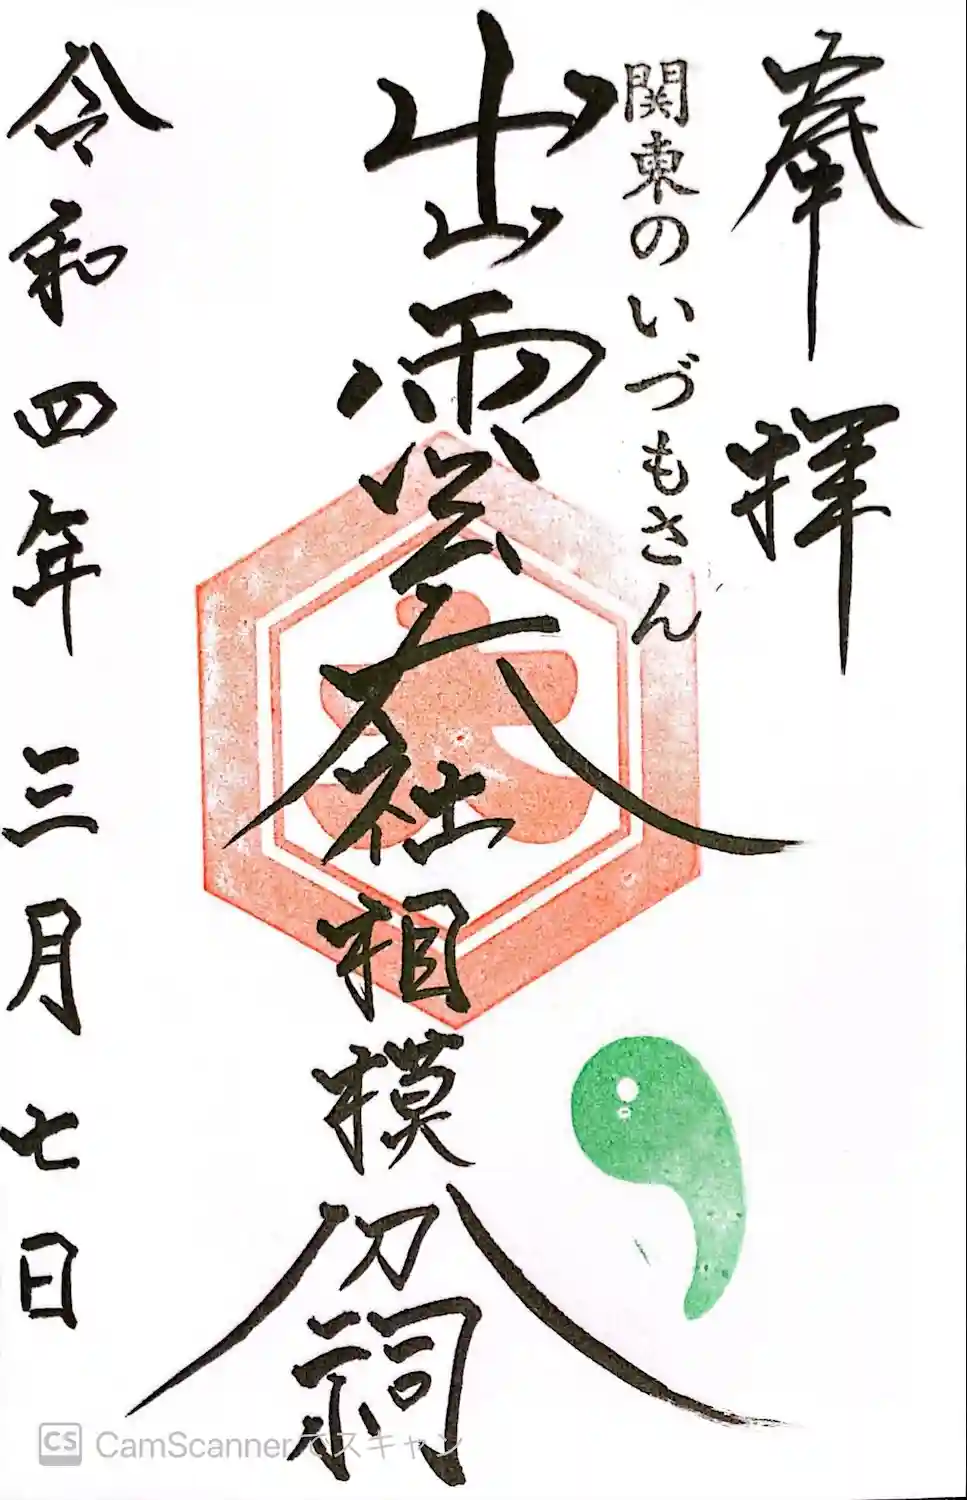 奉拝
関東のいづもさん
出雲大社相模分祠
令和四年 三月七日
大
CS CamScannerでスキャン